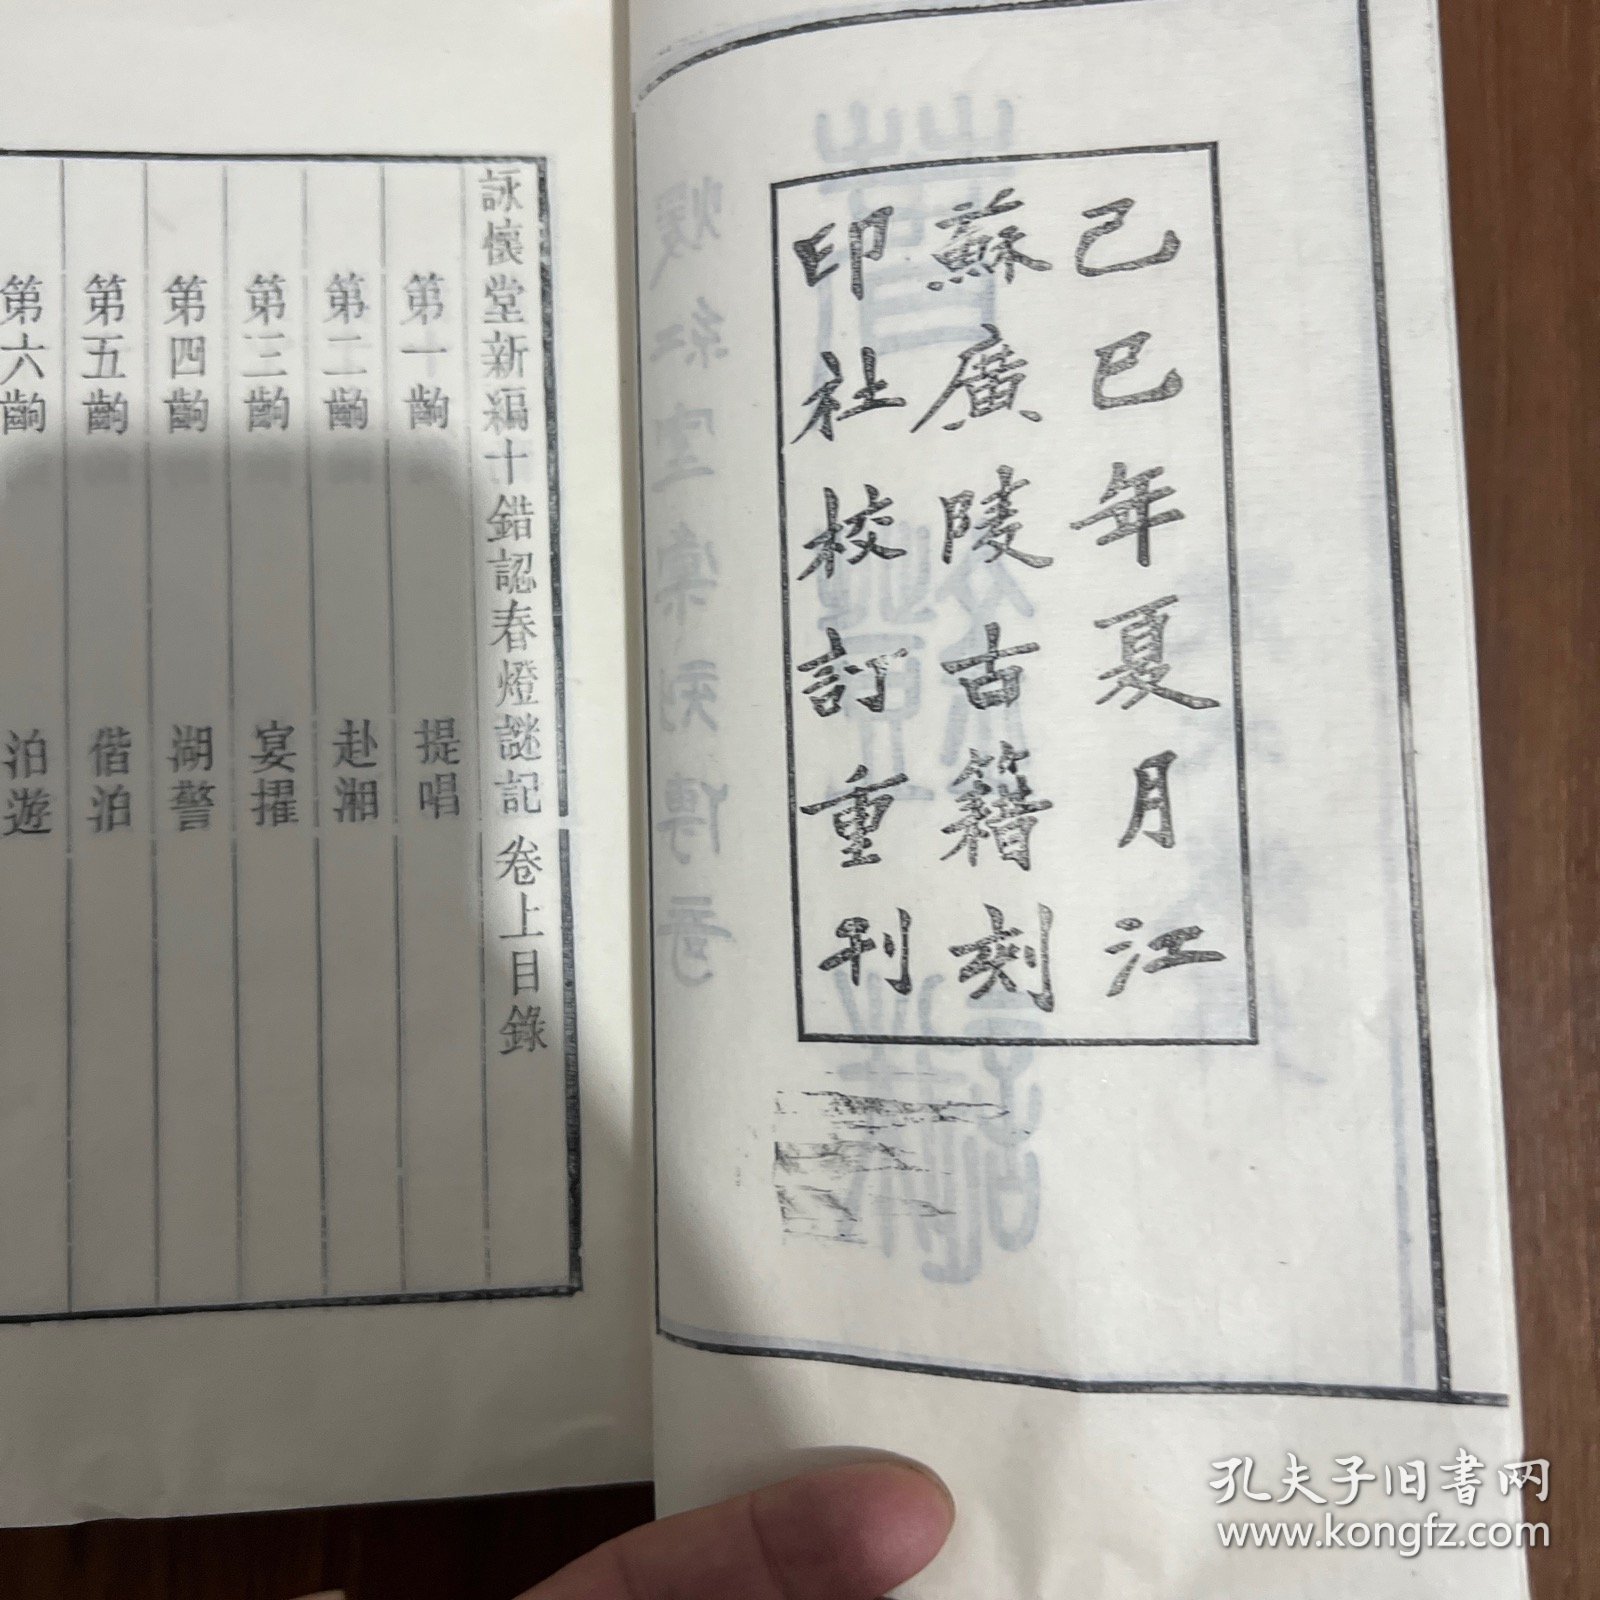 己巳年夏月江
蘇廣陵古籍刻
印社校訂重刊
詠懷堂新編十錯認春燈謎記 卷上目錄
第一齣 提唱
第二齣 赴湘
第三齣 宴擢
第四齣 湖警
第五齣 偕泊
第六齣 泊遊
孔夫子旧书网
www.kongfz.com